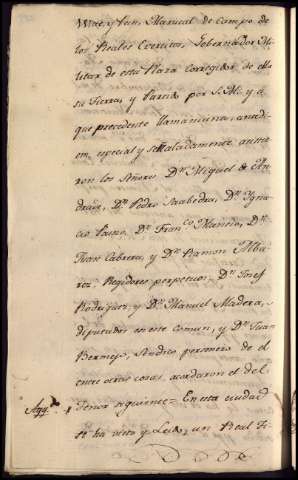 de Campo de
los Reales Exercitos, Gobernador Mi-
litar de esta Plaza Corregidor de ella
su Tierra, y Partido por S. M. y a
que precedente llamamiento, antedi
em, especial y señaladamente asistie
ron los Señores Dn. Miguel de An
drade, Dn. Pedro Saabedra, Dn. Ygna
cio Dn. Franco. Dn.
Juan Cabrera, y Dn. Ramon Alba
rez, Regidores perpetuos, Dn. Josef
Rodriguez y Dn. Manuel Madera,
diputados en este comun, y Dn. Juan
Bermejo, Sindico personero de el
entre otras cosas, acordaron el del
tenor siguiente = En esta ciudad
se ha visto y Leido, un Real